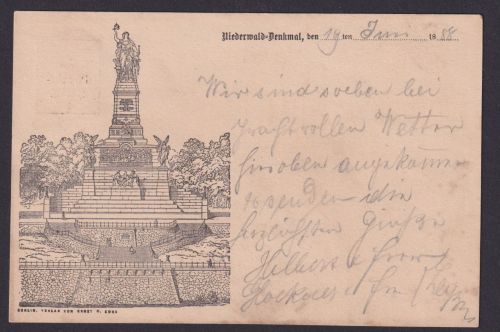 Niederwald-Denkmal, den 19ten Juni 1888
Wir sind soeben bei
prachtvollen Wetter
hier oben angekomm
senden die
herzlichsten Grüße
BERLIN, VERLAG VON ERNST